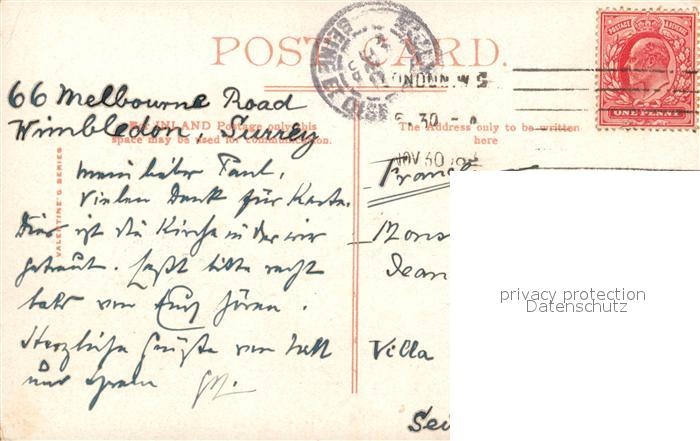 POST CARD.
LONDON. W.S
6.30
NOV 30 05
POSTAGE REVENUE
ONE PENNY
66 Melbourne Road
Wimbledon, Surrey
FOR INLAND Postage only this
space may be used for communication.
The Address only to be written
here
VALENTINE'S SERIES
Mein lieber Paul,
Vielen Dank für Karte.
Dies ist die Kirche in der wir
getraut. Laßt bitte recht
bald von Euch hören.
Herzliche Grüße von
und
France
Mons
Jean
Villa
Sei
privacy protection
Datenschutz